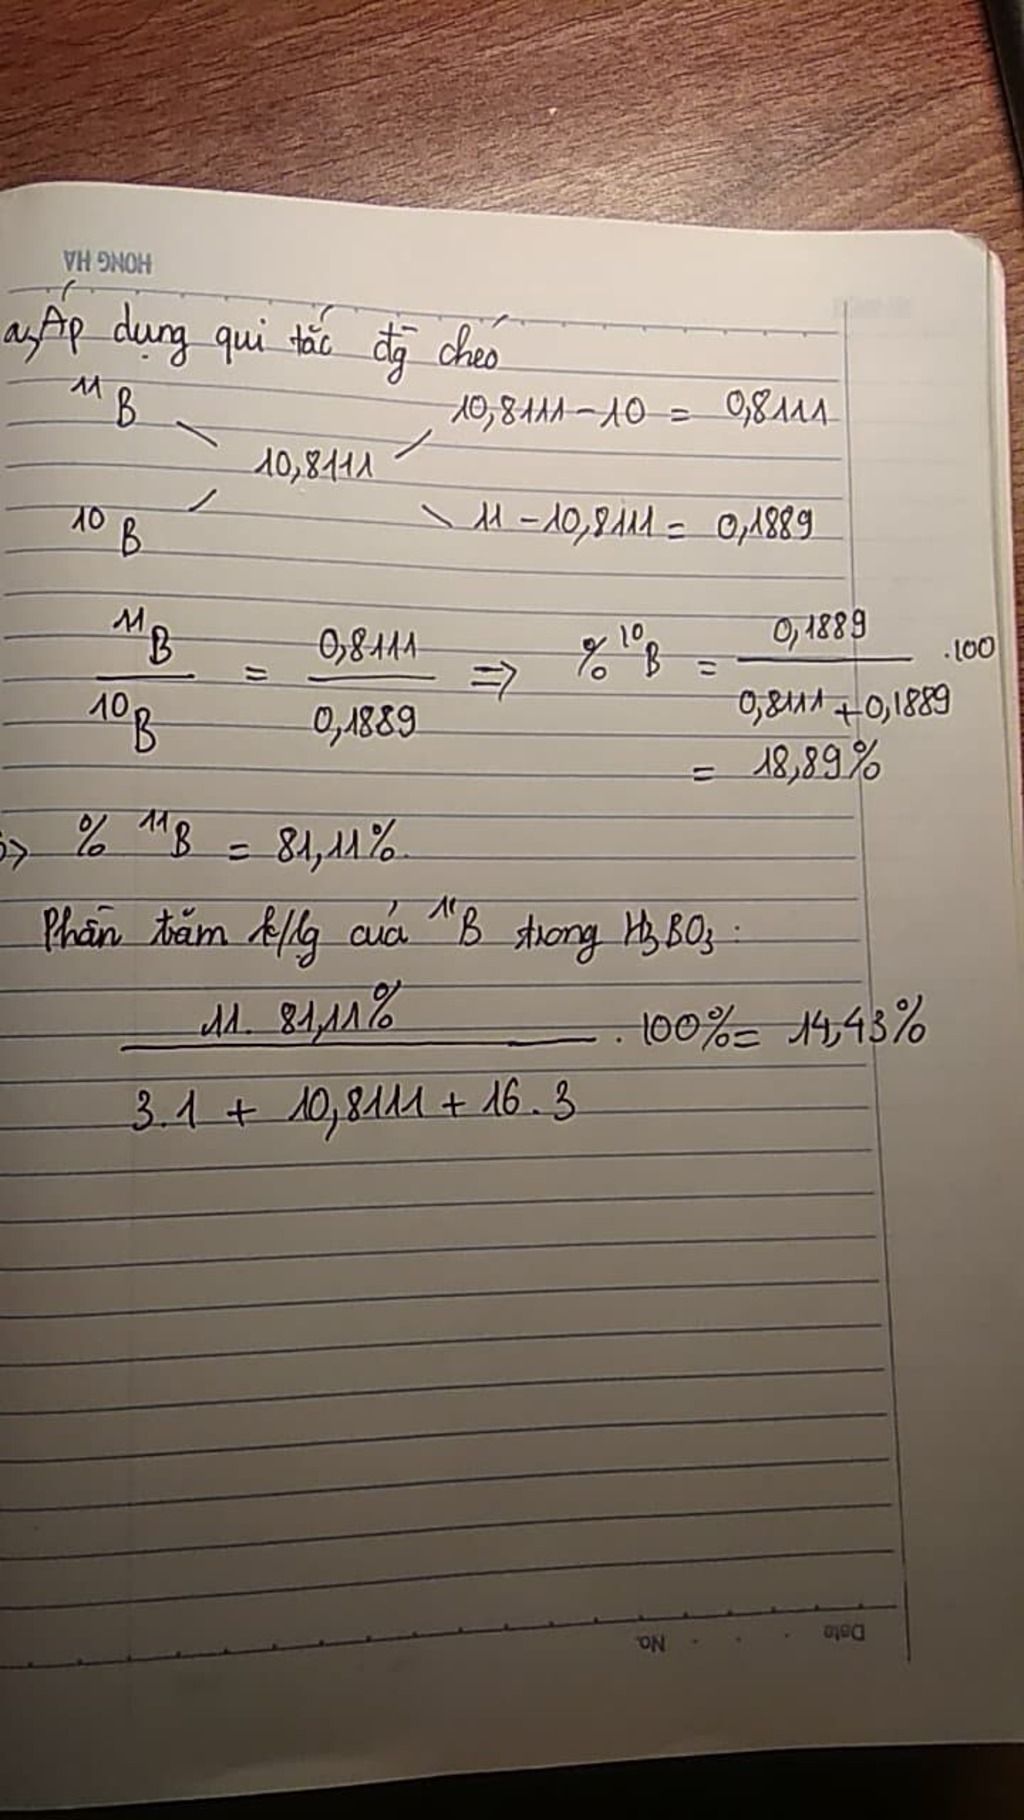 HONG HA
a, Áp dụng qui tắc đg chéo
¹¹B 10,8111 - 10 = 0,8111
10,8111
¹⁰B 11 - 10,8111 = 0,1889
¹¹B / ¹⁰B = 0,8111 / 0,1889 => % ¹⁰B = 0,1889 / 0,8111 + 0,1889 .100
= 18,89%
=> % ¹¹B = 81,11%.
Phần trăm k/lg của ¹¹B trong H₃BO₃ :
11. 81,11% / 3.1 + 10,8111 + 16.3 . 100% = 14,43%
Date No.